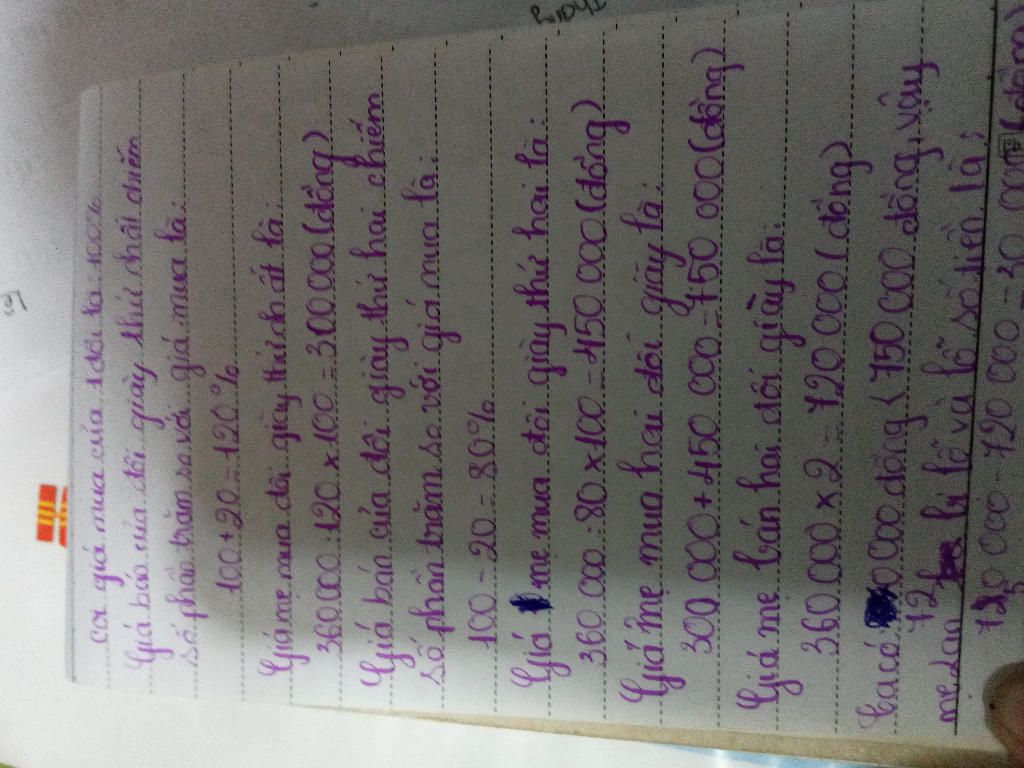 coi giá mua của 1 đôi là 100%
Giá bán của đôi giày thứ nhất chiếm
số phần trăm so với giá mua là:
100 + 20 = 120%
Giá mẹ mua đôi giày thứ nhất là:
360 000 : 120 x 100 = 300 000 (đồng)
Giá bán của đôi giày thứ hai chiếm
số phần trăm so với giá mua là:
100 - 20 = 80%
Giá mẹ mua đôi giày thứ hai là:
360 000 : 80 x 100 = 450 000 (đồng)
Giá mẹ mua hai đôi giày là:
300 000 + 450 000 = 750 000 (đồng)
Giá mẹ bán hai đôi giày là:
360 000 x 2 = 720 000 (đồng)
Ta có: 720 000 đồng < 750 000 đồng, vậy
mẹ Lan bị lỗ và lỗ số tiền là:
750 000 - 720 000 = 30 000 (đồng)